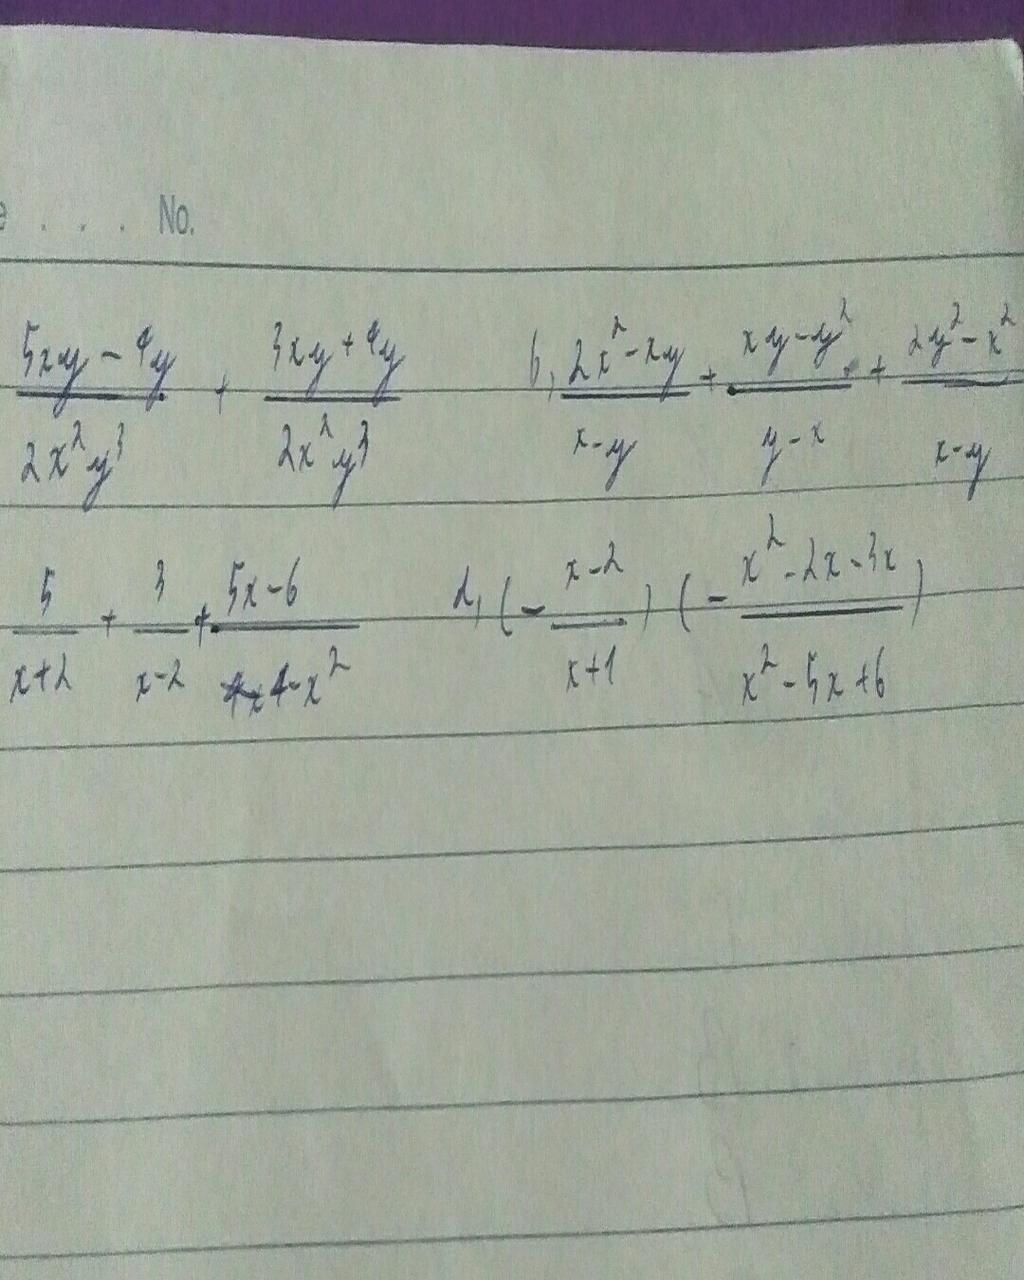 e . . . No.
5xy - 4y / 2x²y³ + 3xy + 4y / 2x²y³ b, 2x² - xy / x - y + xy - y² / y - x + 2y² - x² / x - y
5 / x+2 + 3 / x-2 + 5x - 6 / 4 - x² d, (- x - 2 / x + 1) (- x² - 2x - 3x / x² - 5x + 6)